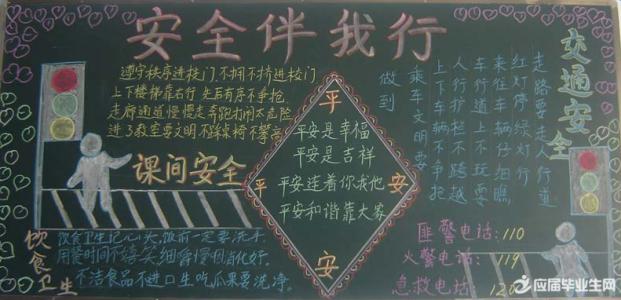 安全伴我行
遵守秩序进校门不拥不挤进校门
上下楼梯靠右行先后有序不争抢
走廊通道慢慢走奔跑打闹太危险
进了教室要文明不踩桌椅不攀高
课间安全
饮食卫生
饮食卫生记心头,饭前一定要洗手.
用餐时间不嬉笑细嚼慢咽消化好.
不洁食品不进口生吃瓜果要洗净.
平
平 安
安
平安是幸福
平安是吉祥
平安连着你我他
平安和谐靠大家
交通安全
走路要走人行道
红灯停绿灯行
来往车辆仔细瞧
车行道上不玩耍
人行护栏不跨越
上下车辆不争抢
乘车文明要
做到
匪警电话:110
火警电话:119
急救电话:120
应届毕业生网